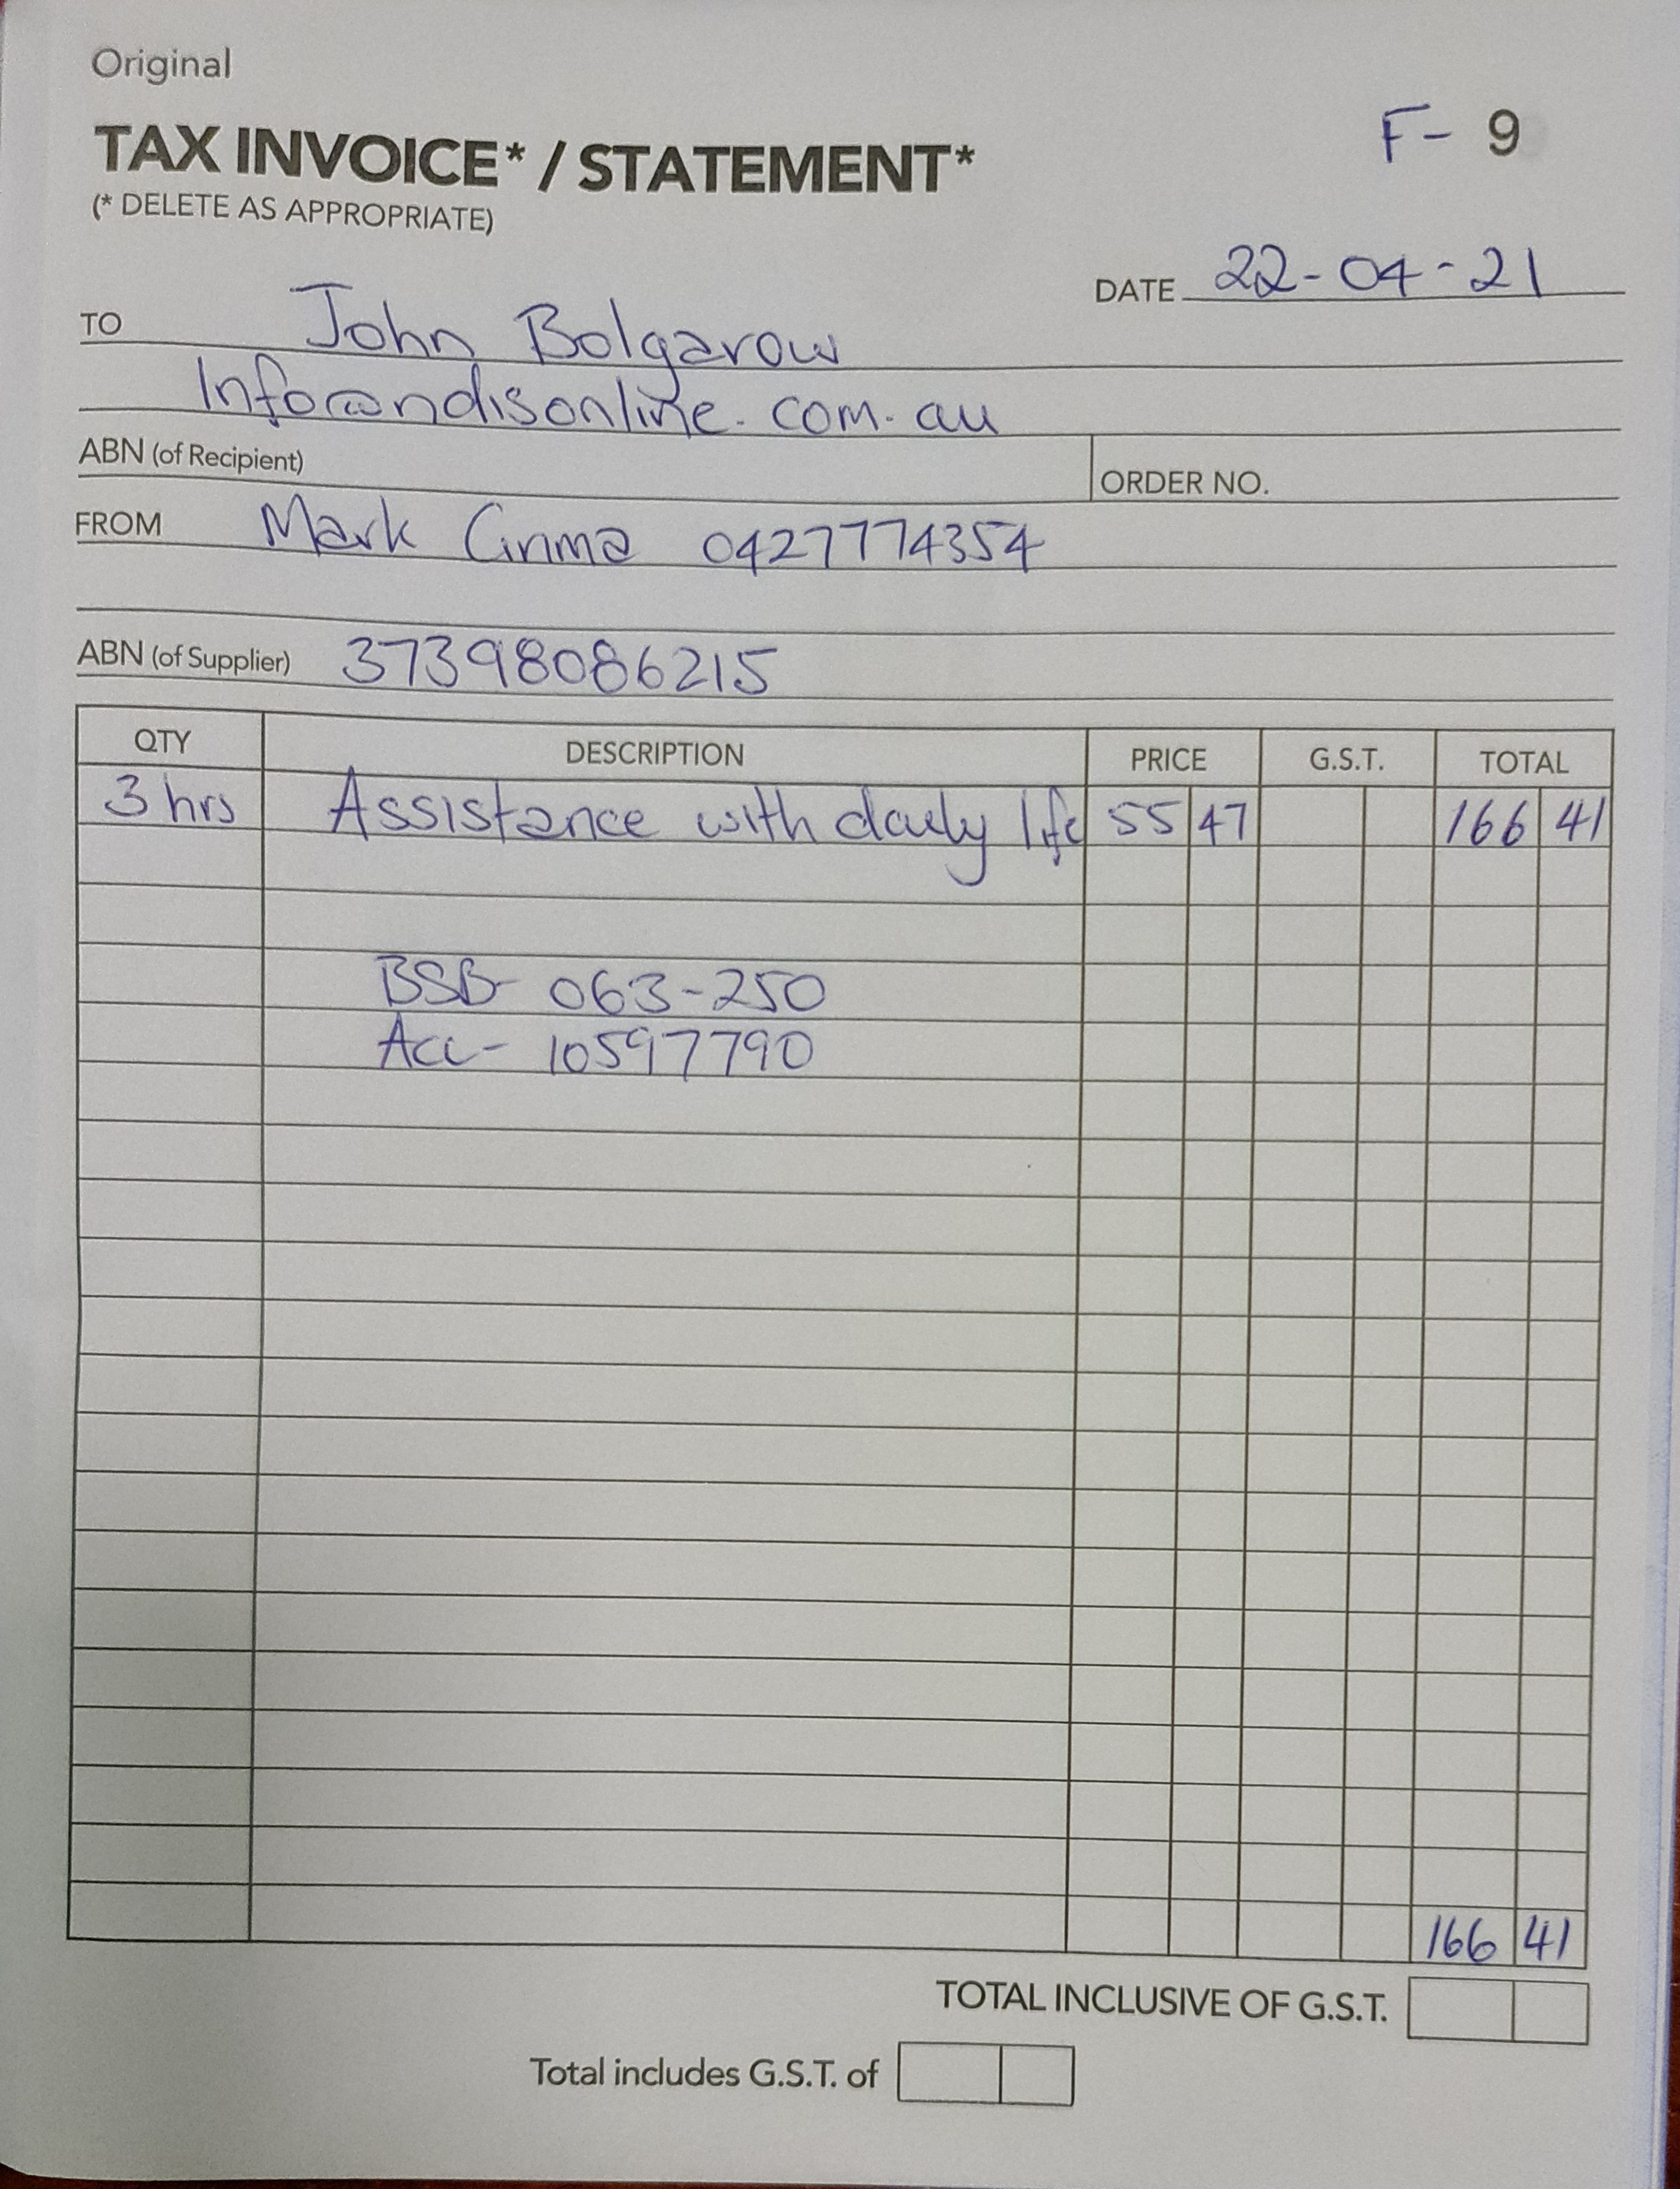 Original
TAX INVOICE* / STATEMENT*
(* DELETE AS APPROPRIATE)
F- 9
DATE 22-04-21
TO John Bolgarow
Info@ndisonline.com.au
ABN (of Recipient)
ORDER NO.
FROM Mark Cinma 0427774354
ABN (of Supplier) 37398086215
QTY DESCRIPTION PRICE G.S.T. TOTAL
3 hrs Assistance with daily life 55 47 166 41
BSB- 063-250
Acc- 10597790
166 41
TOTAL INCLUSIVE OF G.S.T.
Total includes G.S.T. of